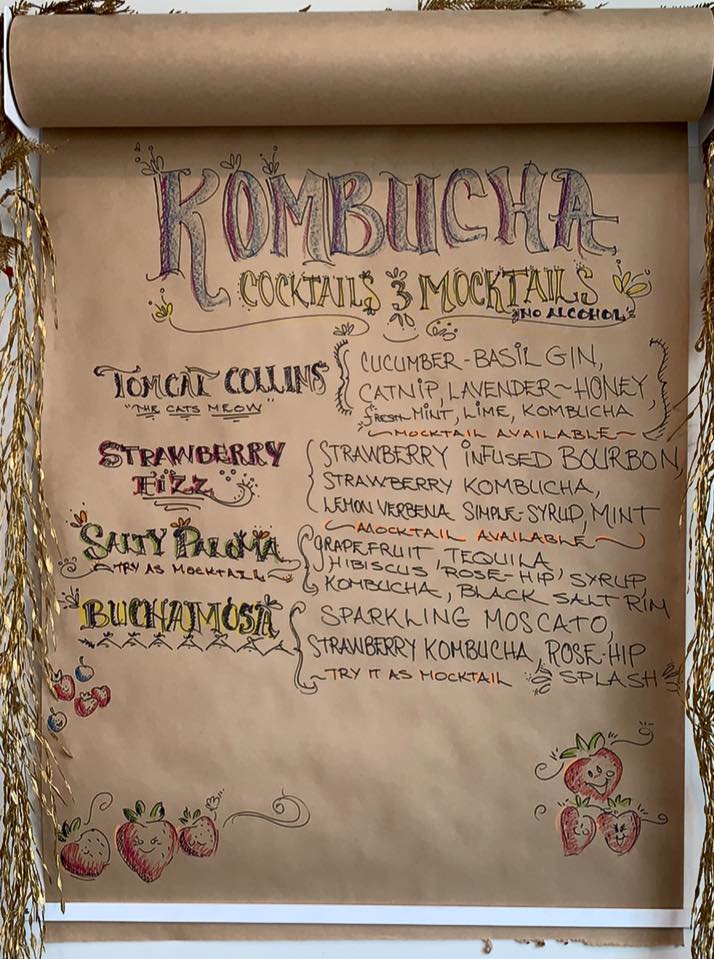 KOMBUCHA
COCKTAILS & MOCKTAILS
NO ALCOHOL
TOMCAT COLLINS
"THE CATS MEOW"
CUCUMBER-BASIL GIN,
CATNIP, LAVENDER~HONEY,
FRESH MINT, LIME, KOMBUCHA
~MOCKTAIL AVAILABLE~
STRAWBERRY
FIZZ
STRAWBERRY INFUSED BOURBON,
STRAWBERRY KOMBUCHA,
LEMON VERBENA SIMPLE-SYRUP, MINT
~MOCKTAIL AVAILABLE~
SALTY PALOMA
~TRY AS MOCKTAIL~
GRAPEFRUIT, TEQUILA
HIBISCUS 'ROSE-HIP' SYRUP,
KOMBUCHA, BLACK SALT RIM
BUCHAMOSA
SPARKLING MOSCATO,
STRAWBERRY KOMBUCHA, ROSE-HIP
SPLASH
~TRY IT AS MOCKTAIL